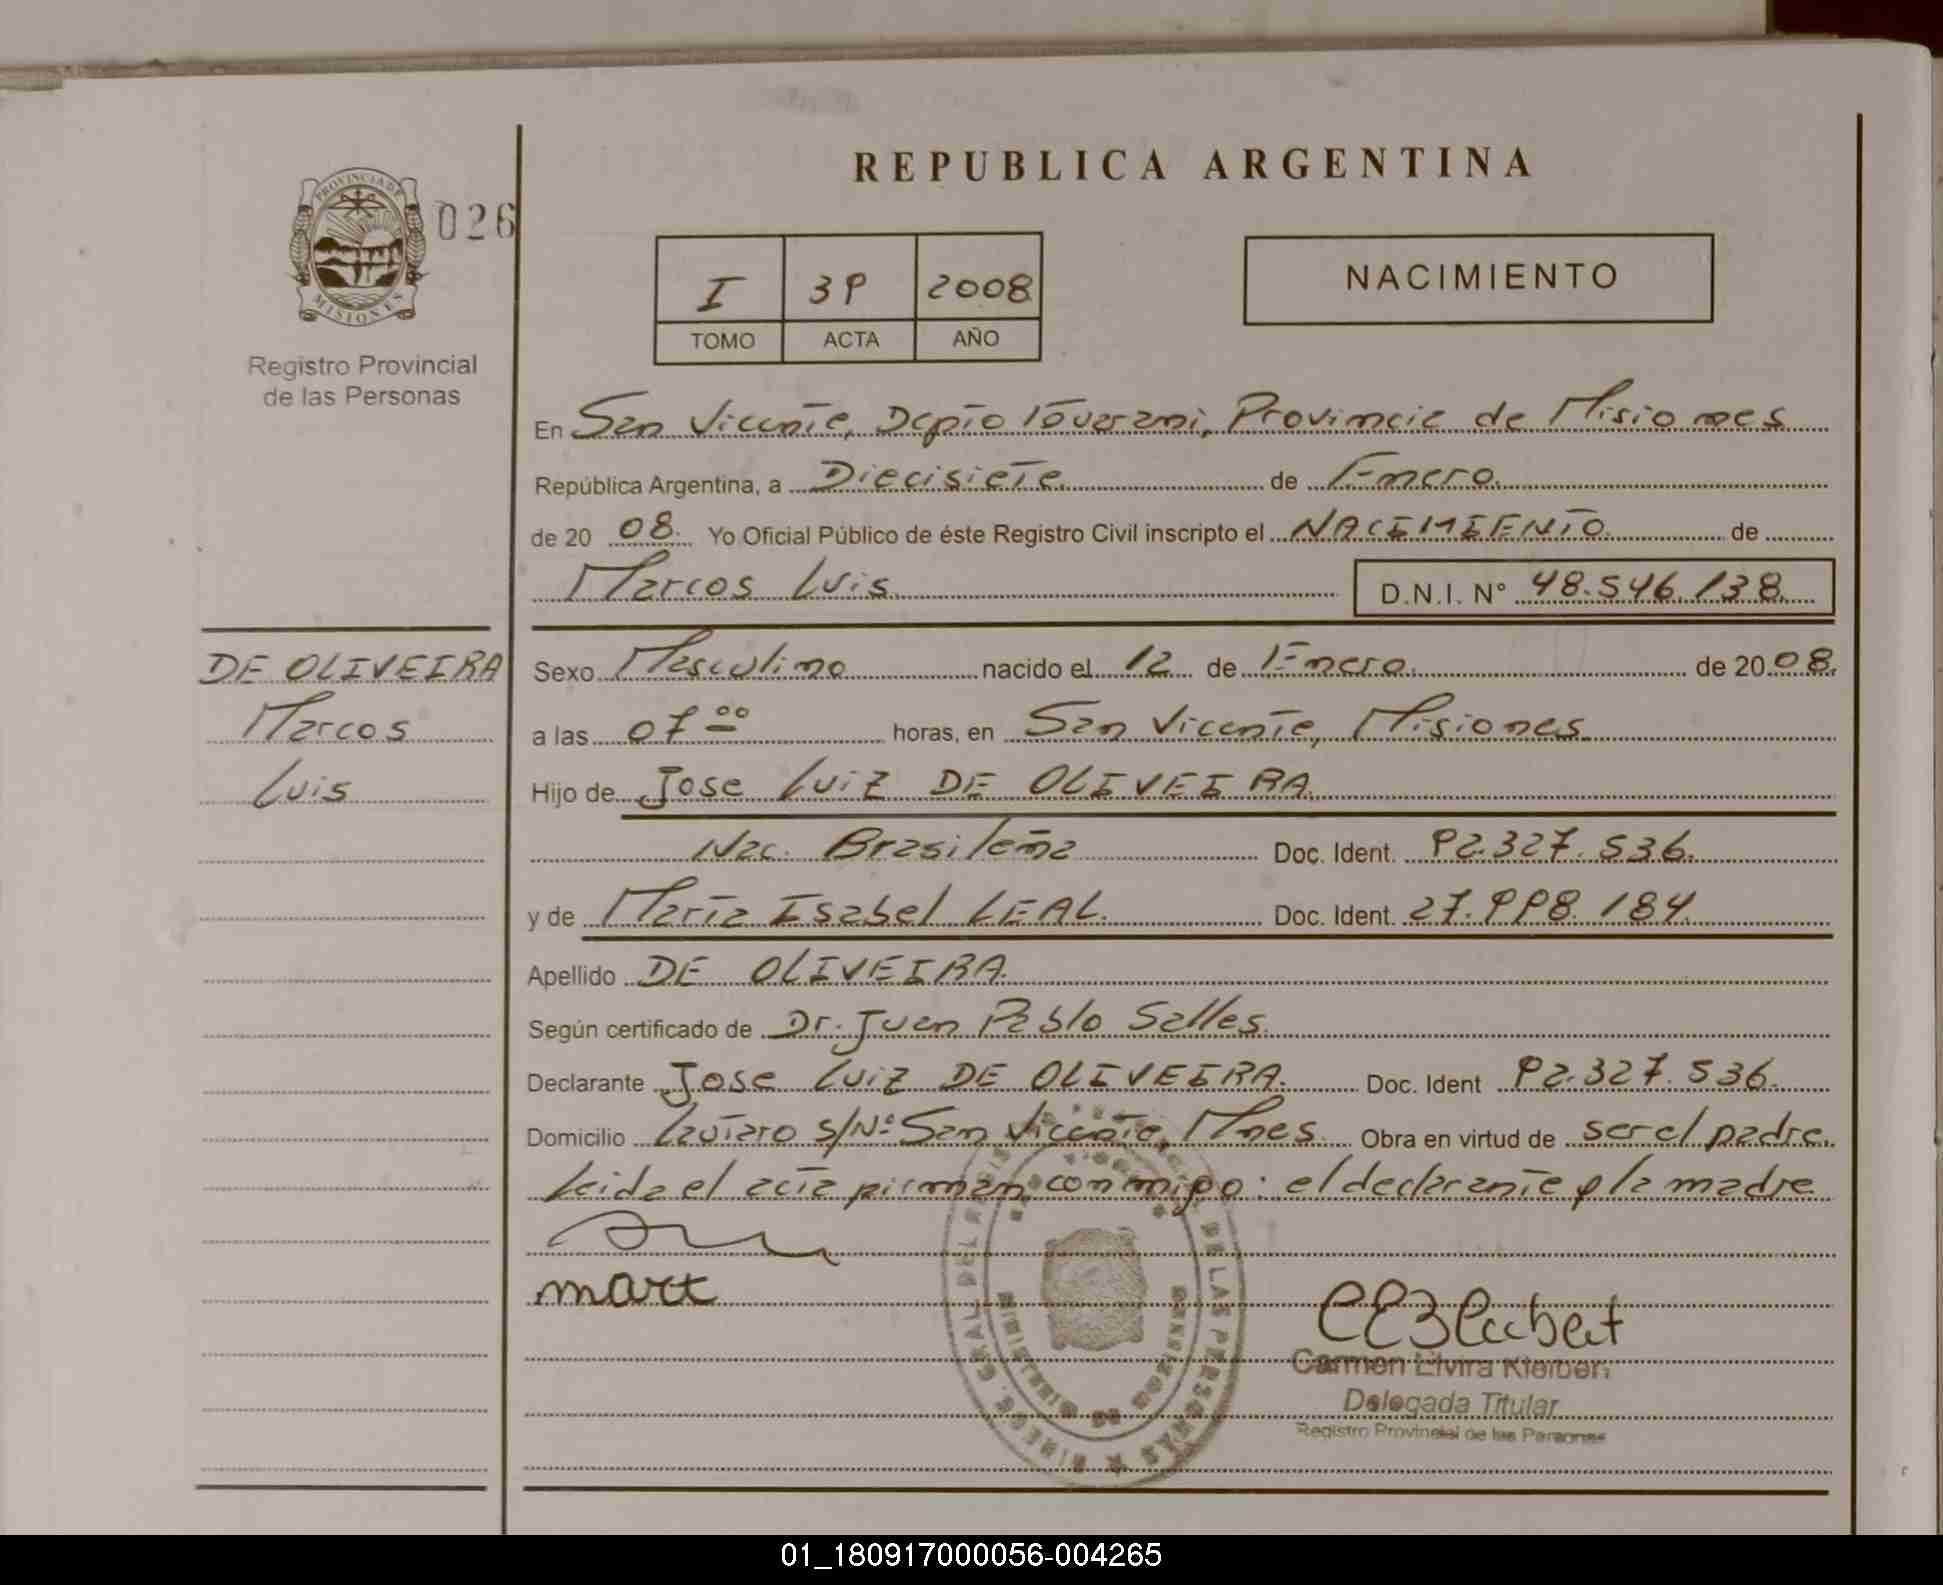 REPUBLICA ARGENTINA
PROVINCIA DE
MISIONES
026
Registro Provincial
de las Personas
I 39 2008
TOMO ACTA AÑO
NACIMIENTO
En San Vicente, Depto Guarani, Provincia de Misiones
República Argentina, a Diecisiete de Enero
de 20 08. Yo Oficial Público de éste Registro Civil inscripto el NACIMIENTO de
Marcos Luis D.N.I. N° 48.546.138
DE OLIVEIRA
Marcos
Luis
Sexo Masculino nacido el 12 de Enero de 20 08.
a las 07 00 horas, en San Vicente, Misiones
Hijo de Jose Luiz DE OLIVEIRA
Nac. Brasileña Doc. Ident. 92.327.536.
y de María Isabel LEAL. Doc. Ident. 27.998.184
Apellido DE OLIVEIRA
Según certificado de Dr. Juan Pablo Salles.
Declarante Jose Luiz DE OLIVEIRA. Doc. Ident 92.327.536.
Domicilio Lautaro s/Nº San Vicente, Mnes. Obra en virtud de ser el padre.
Leida el acta firman conmigo: el declarante y la madre
mart
DE LAS PERSONAS
Delegada Titular
Registro Provincial de las Personas
01_180917000056-004265